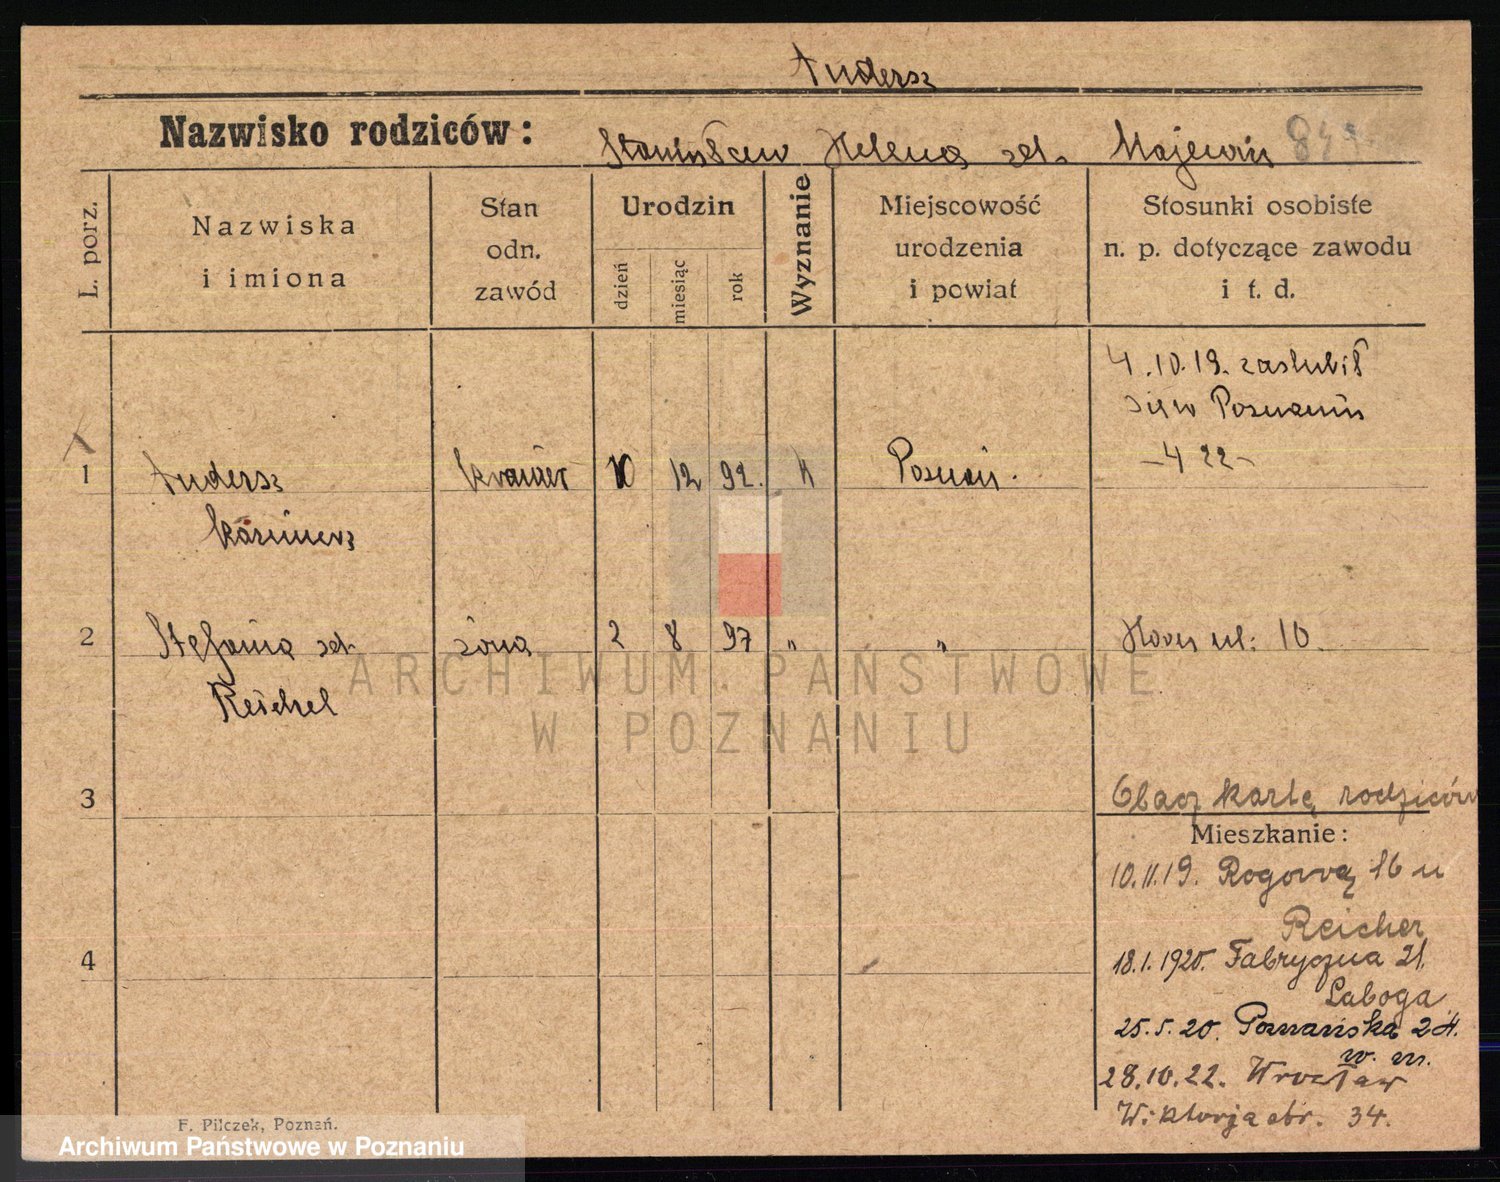 Andersz
Nazwisko rodziców: Stanisław Helena
L. porz.
Nazwiska i imiona
Stan odn. zawód
Urodzin
dzień
miesiąc
rok
Wyznanie
Miejscowość urodzenia i powiat
Stosunki osobiste n. p. dotyczące zawodu i t. d.
4.10.19. zaslubił
się w Poznaniu
- 4 22 -
1 Andersz 12 92. Poznań.
Kazimierz
2 Stefania żona 2 8 97 " "
Reichel
ul: 10.
3 Obacz kartę rodziców
Mieszkanie:
10.11.19. 16 u
Reicher
4 18.1.1920. Fabryczna
Laboga
25.5.20. Poznańska
w. m.
28.10.22. Wrocław
Wiktorja str. 34.
F. Pilczek, Poznań.
ARCHIWUM PAŃSTWOWE
W POZNANIU
Archiwum Państwowe w Poznaniu